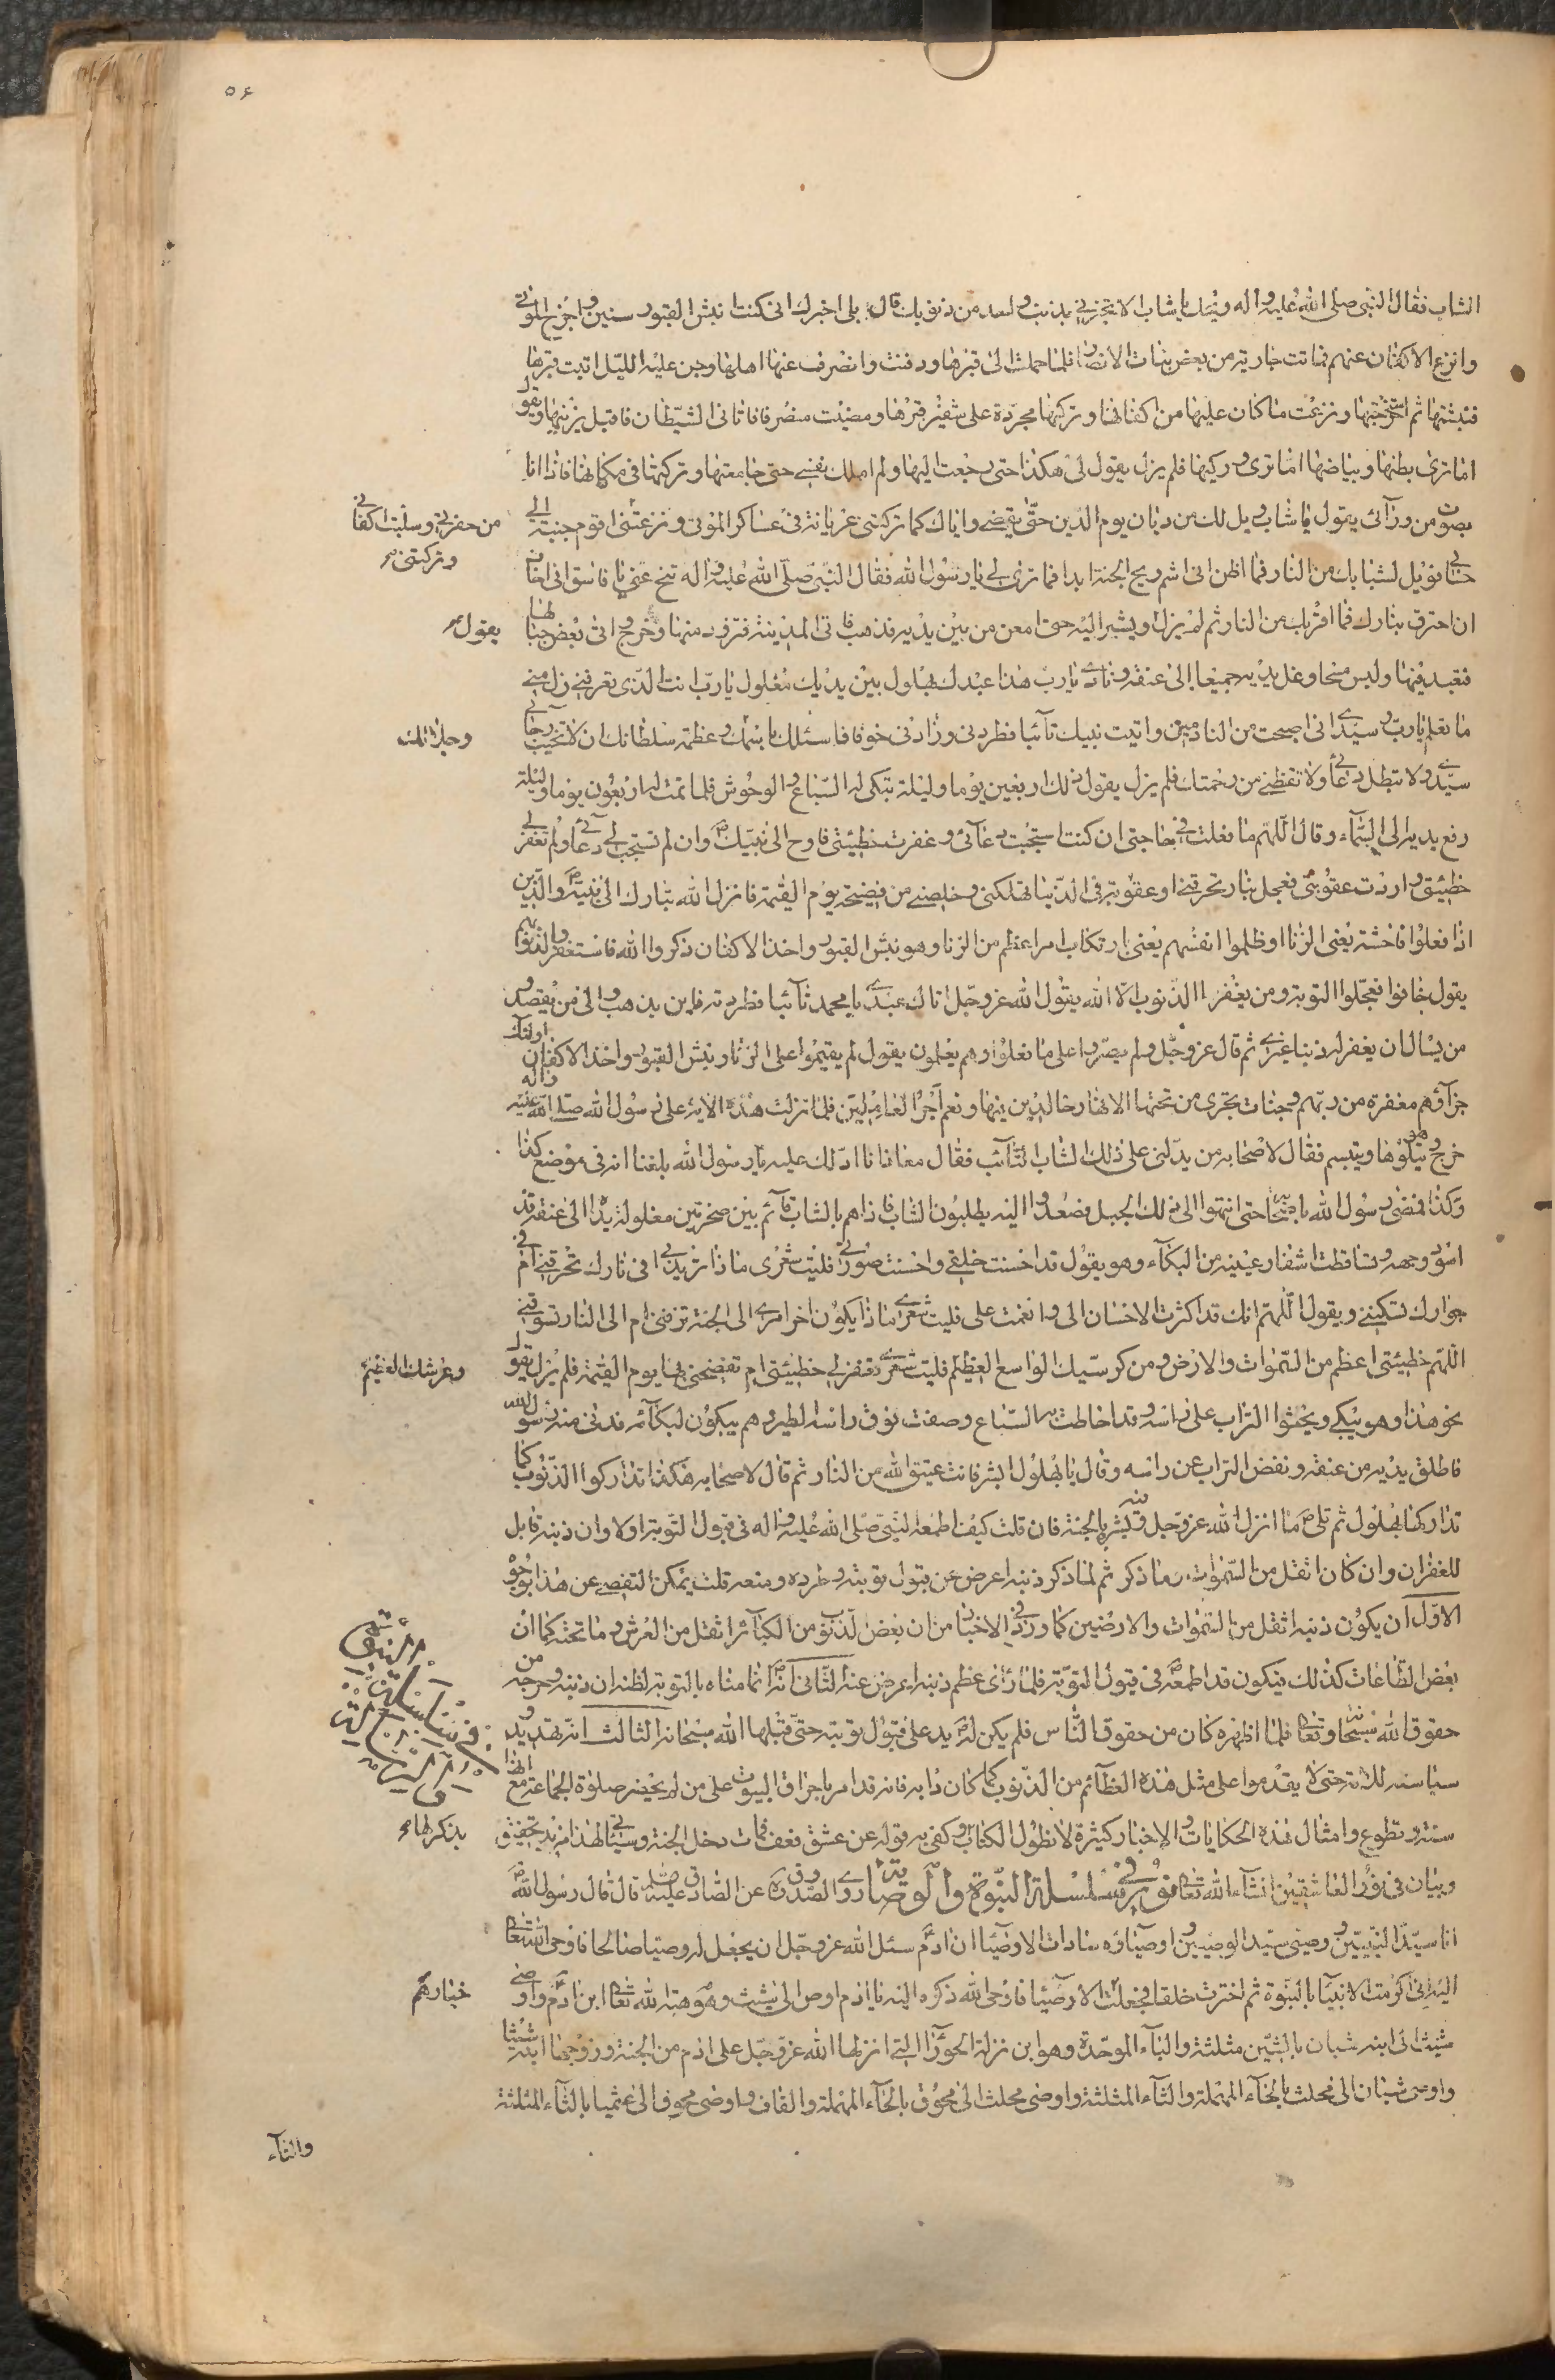 ٥٤
الشاب فقال النبي صلى الله عليه واله ويحك يا شاب الا تخبرني بذنب واحد من ذنوبك قال بلى اخبرك انى كنت انبش القبور سبع سنين واخرج الموتى
وانزع الاكفان عنهم فماتت جارية من بعض بنات الانصار فلما حملت الى قبرها ودفنت وانصرف عنها اهلها وجن عليه الليل اتيت قبرها
فنبشتها ثم استخرجتها ونزعت ما كان عليها من اكفانها وتركتها مجردة على شفير قبرها ومضيت منصرفا فاتانى الشيطان فاقبل يزينها ويقول
اما ترى بطنها وبياضها اما ترى وركيها فلم يزل يقول لى هكذا حتى رجعت اليها ولم املك نفسي حتى جامعتها وتركتها في مكانها فاذا انا
بصوت من ورآئى يقول يا شاب ويل لك من ديان يوم الدين حتى يقضي واياك كما تركتنى عريانة فى عساكر الموتى ونزعتنى اقوم جنبة الى
من حفرتى وسلبت اكفانى
وتركتنى
حسابى فويل لشبابك من النار فما اظن انى اشم ريح الجنة ابدا فما ترى لى يا رسول الله فقال النبي صلى الله عليه واله تنح عنى يا فاسق انى اخاف
ان احترق بنارك فما اقربك من النار ثم لم يزل ويشير اليه حتى امعن من بين يديه فذهب فاتى المدينة فتزود منها وخرج واتى بعض جبالها
يقول
فتعبد فيها ولبس مسحا وغل يديه جميعا الى عنقه ونادى يا رب هذا عبدك بهلول بين يديك مغلول يا رب انت الذى تعرفنى وزل منى
ما تعلم يا رب سيدى انى اصبحت من النادمين واتيت نبيك تآئبا فطردنى وزادنى خوفا فاسئلك باسمك وعظمة سلطانك ان لا تخيب رجائى
وجلالك
سيدى ولا تبطل دعائى ولا تقنطنى من رحمتك فلم يزل يقول ذلك اربعين يوما وليلة تبكى له السباع والوحوش فلما تمت له اربعون يوما وليلة
رفع يديه الى السماء وقال اللهم ما فعلت فى حاجتى ان كنت استجبت دعآئى وغفرت خطيئتى فاوح الى نبيك وان لم تستجب لى دعآئى ولم تغفر لى
خطيئتى واردت عقوبتى فعجل بنار تحرقنى او عقوبة فى الدنيا تهلكنى وخلصنى من فضيحة يوم القيمة فانزل الله تبارك الى نبيه والذين
اذا فعلوا فاحشة يعنى الزنا او ظلموا انفسهم يعنى بارتكاب امر اعظم من الزنا وهو نبش القبور واخذ الاكفان ذكروا الله فاستغفروا لذنوبهم
يقول خافوا فعجلوا التوبة ومن يغفر الذنوب الا الله يقول الله عز وجل اتاك عبدى يا محمد تآئبا فطردته فاين يذهب والى من يقصد و
من يسال ان يغفر له ذنبا غيرى ثم قال عز وجل ولم يصروا على ما فعلوا وهم يعلمون يقول لم يقيموا على الزنا ونبش القبور واخذ الاكفان اولئك
جزآؤهم مغفرة من ربهم وجنات تجرى من تحتها الانهار خالدين فيها ونعم اجر العاملين فلما نزلت هذه الاية على رسول الله صلى الله عليه واله
خرج وهو يتلوها ويتبسم فقال لاصحابه من يدلنى على ذلك الشاب التآئب فقال معاذ انا ادلك عليه يا رسول الله بلغنا انه فى موضع كذا
وكذا فمضى رسول الله باصحابه حتى انتهوا الى ذلك الجبل فصعدوا اليه يطلبون الشاب فاذا هم بالشاب قآئم بين صخرتين مغلولة يداه الى عنقه قد
اسود وجهه وتساقطت اشفار عينيه من البكآء وهو يقول قد احسنت خلقى واحسنت صورتى فليت شعرى ما ذا تريد بى افى نارك تحرقنى ام فى
جوارك تسكننى ويقول اللهم انك قد اكثرت الاحسان الى وانعمت على فليت شعرى ما ذا يكون اخر امرى الى الجنة تزفنى ام الى النار تسوقنى
اللهم خطيئتى اعظم من السموات والارض ومن كرسيك الواسع العظيم فليت شعرى تغفر لى خطيئتى ام تفضحنى بها يوم القيمة فلم يزل يقول
وعرشك العظيم
نحو هذا وهو يبكى ويحثوا التراب على راسه وقد احاطت به السباع وصفت فوق راسه الطير وهم يبكون لبكآئه فدنى منه رسول الله
فاطلق يديه من عنقه ونفض التراب عن راسه وقال يا بهلول ابشر فانت عتيق الله من النار ثم قال لاصحابه هكذا تداركوا الذنوب كما
تداركها بهلول ثم تلى ما انزل الله عز وجل فيه وبشره بالجنة فان قلت كيف اطمعه النبي صلى الله عليه واله فى قبول التوبة اولا وان ذنبه قابل
للغفران وان كان اثقل من السموات وما ذكر ثم لما ذكر ذنبه اعرض عن قبول توبته وطرده ومنعه قلت يمكن التفصى عن هذا بوجوه
الاول ان يكون ذنبه اثقل من السموات والارضين كما ورد فى الاخبار من ان بعض الذنوب من الكبائر اثقل من العرش وما تحته كما ان
بعض الطاعات كذلك فيكون قد اطمعه فى قبول التوبة فلما رأى عظم ذنبه اعرض عنه الثانى انه انما مناه بالتوبة لظنه ان ذنبه وجرمه من
حقوق الله سبحانه وتعالى فلما اظهره كان من حقوق الناس فلم يكن له يد على قبول توبته حتى قبلها الله سبحانه الثالث انه تهديد و
سياسة للامة حتى لا يقدموا على مثل هذه العظآئم من الذنوب كما كان دابه فانه قد امر باحراق البيوت على من لم يحضر صلوة الجماعة مع انها
سنة وتطوع وامثال هذه الحكايات والاخبار كثيرة لا نطول الكتاب وكفى به قوله عن عشق فعف فمات دخل الجنة وسيأتى لهذا مزيد تحقيق
بذكرها
وبيان فى نور العاشقين انشآء الله تعالى نور فى سلسلة النبوة والوصاية روى الصدوق عن الصادق عليه السلام قال قال رسول الله
انا سيد النبيين ووصيى سيد الوصيين واوصيآؤه سادات الاوصيآء ان ادم سئل الله عز وجل ان يجعل له وصيا صالحا فاوحى الله تعالى
اليه انى اكرمت الانبيآء بالنبوة ثم اخترت خلقا فجعلت الاوصيآء فاوحى الله ذكره اليه يا ادم اوص الى شيث وهو هبة الله تعالى ابن ادم واوصى
خيارهم
شيث الى ابنه شبان بالشين مثلثة والبآء الموحدة وهو ابن نزلة الحوراء التى انزلها الله عز وجل على ادم من الجنة وزوجها ابنه شيثا
واوصى شبان الى محلث بالحآء المهملة والثآء المثلثة واوصى محلث الى محوق بالحآء المهملة والقاف واوصى محوق الى عثميا بالثآء المثلثة
والثآء